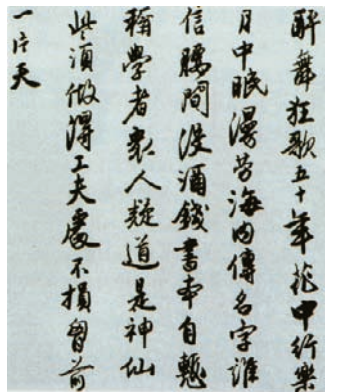 醉舞狂歌五十年花中行樂
月中眠漫勞海内傳名字誰
信腰間沒酒錢書本自慙
稱學者衆人疑道是神仙
些須做得工夫處不損胷前
一片天